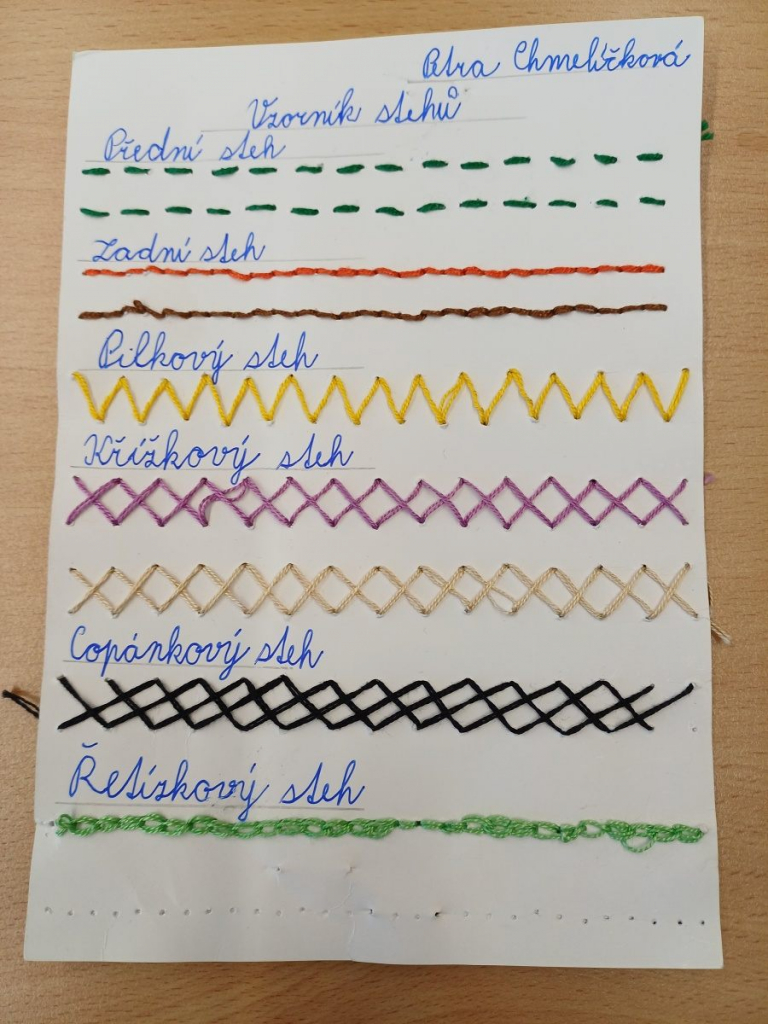 Petra Chmelíčková
Vzorník stehů
Přední steh
Zadní steh
Pilkový steh
Křížkový steh
Copánkový steh
Řetízkový steh